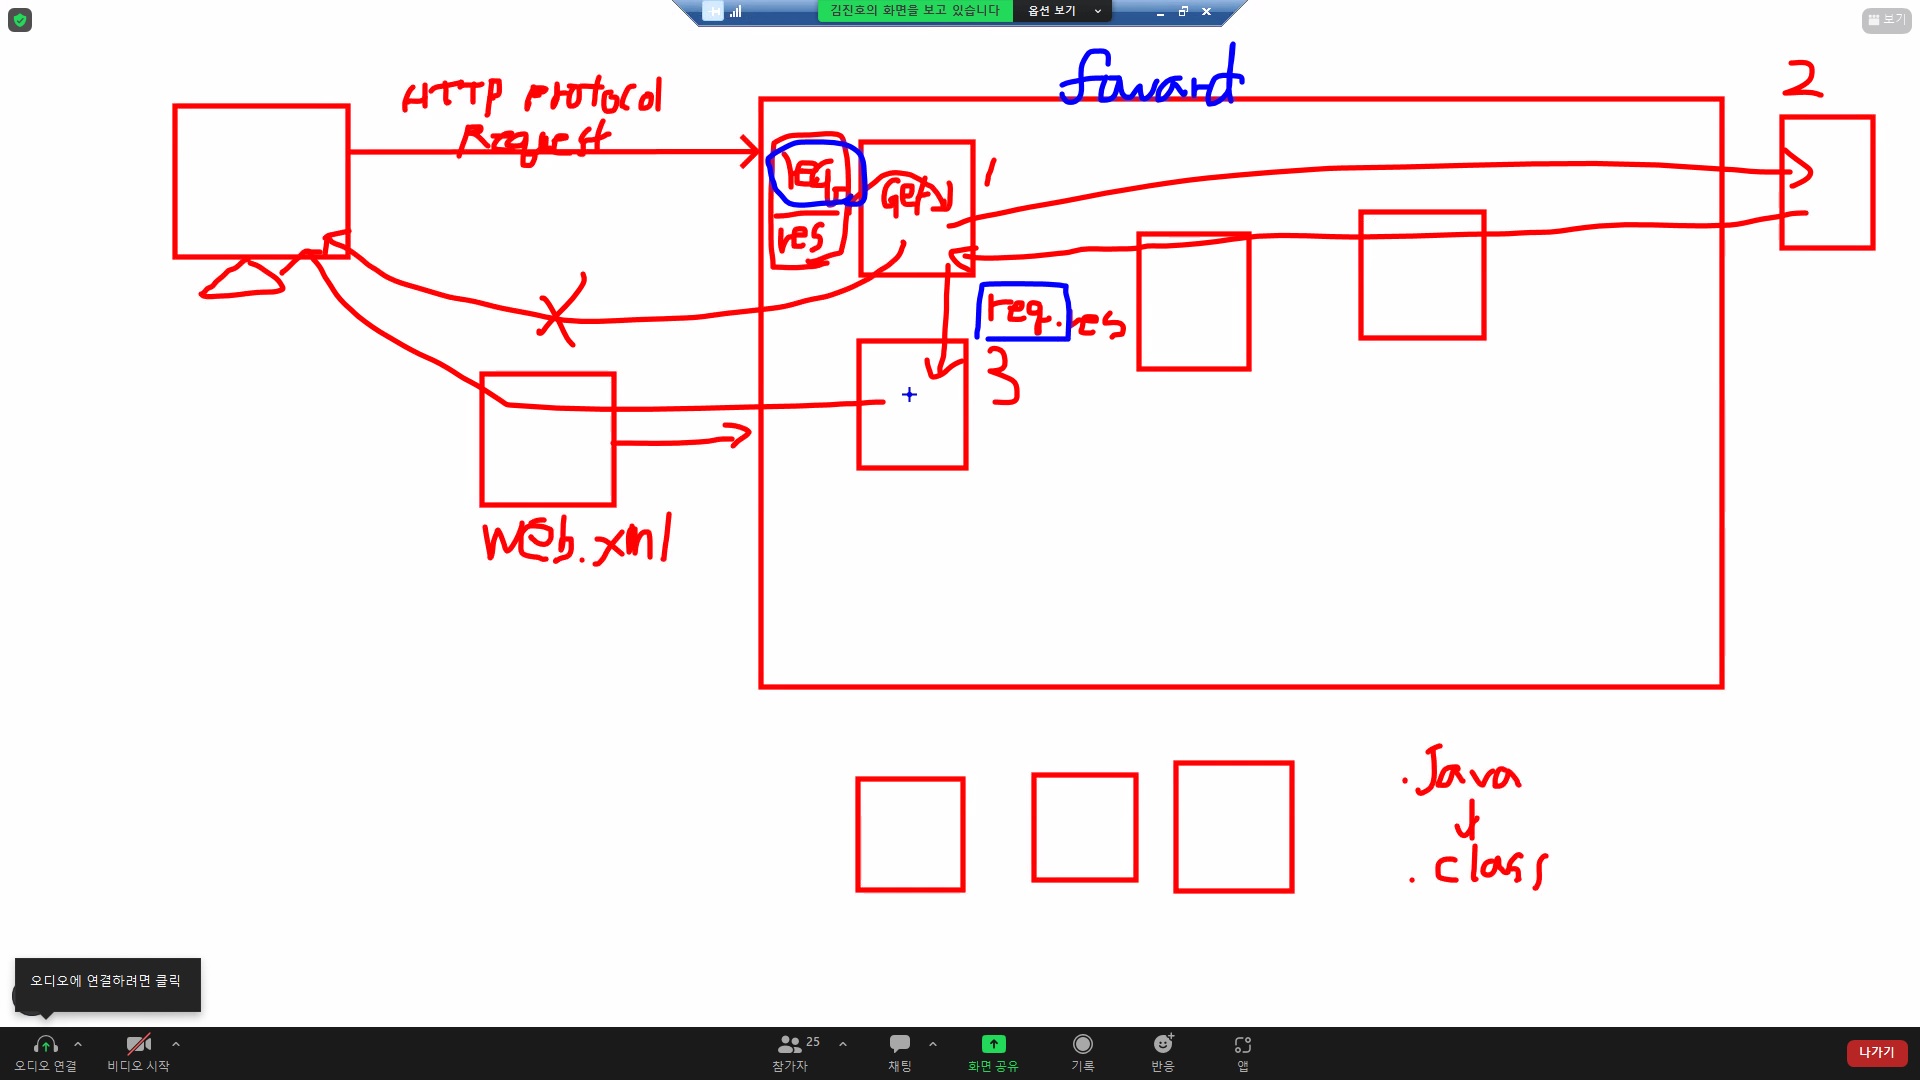 김진호의 화면을 보고 있습니다
옵션 보기
보기
foward
HTTP protocol
Request
2
req
res
get)
1
req.res
3
web.xml
.Java
.class
오디오에 연결하려면 클릭
오디오 연결
비디오 시작
25
참가자
채팅
화면 공유
기록
반응
앱
나가기